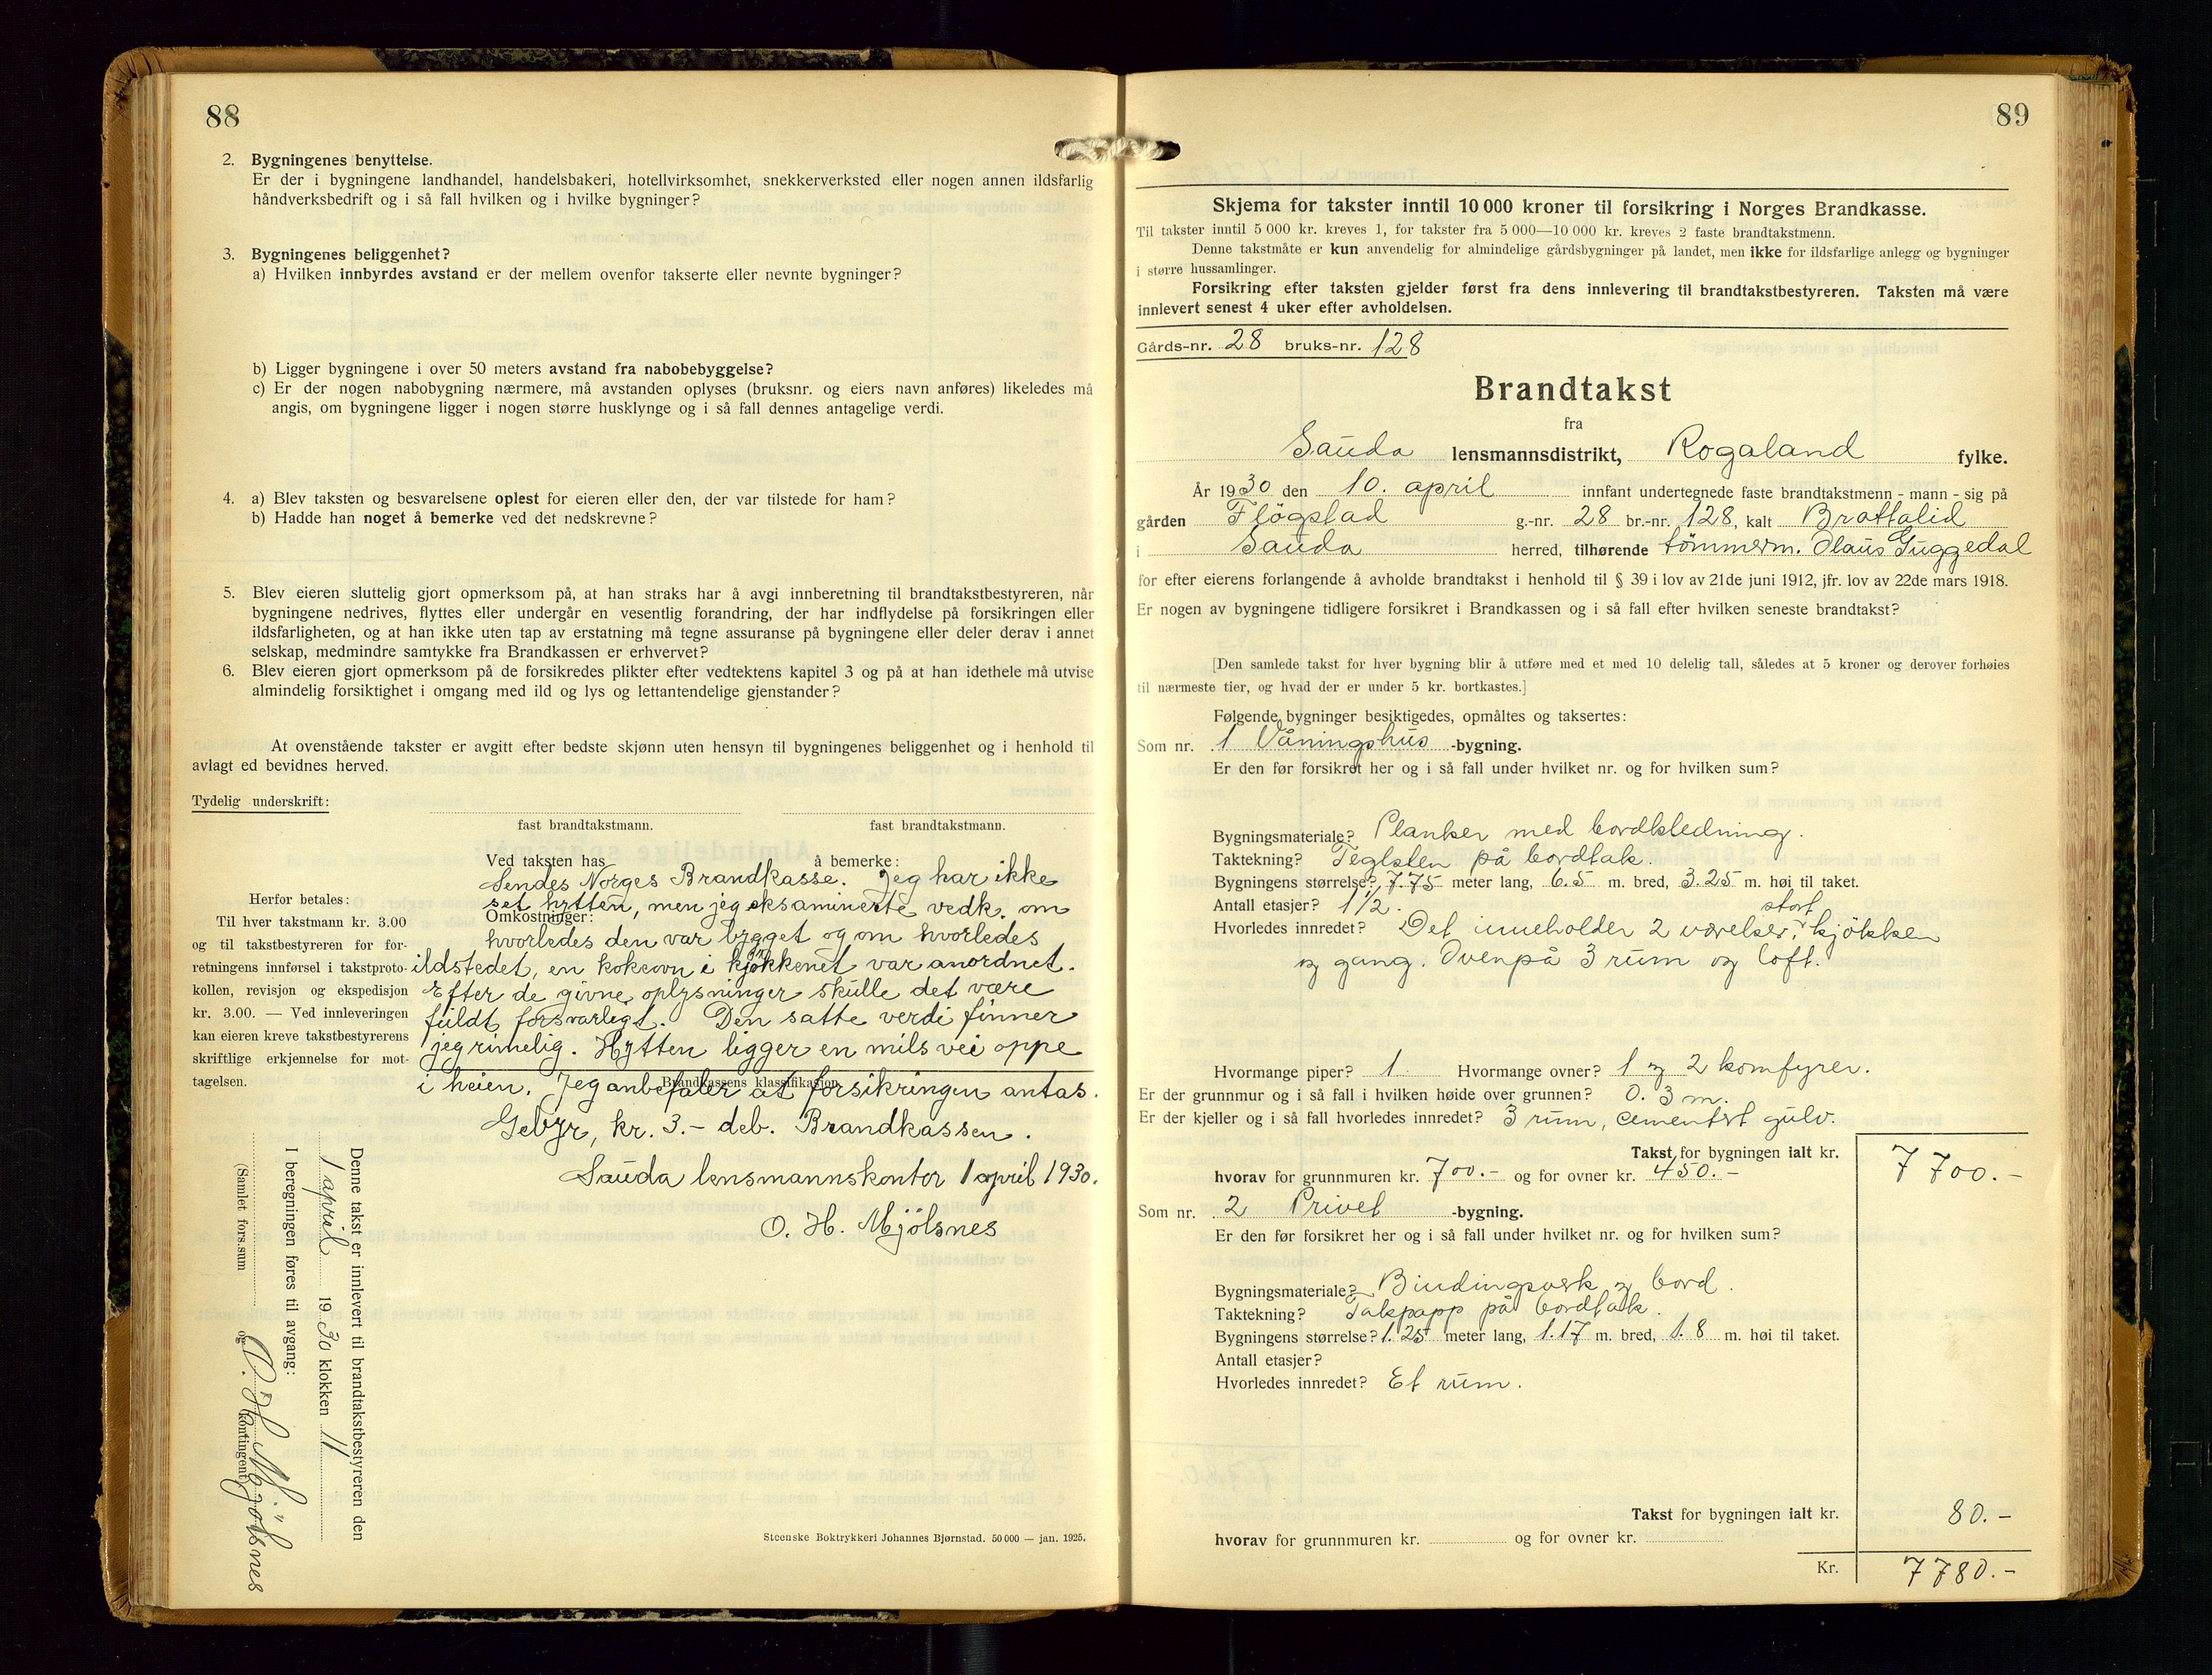 88
2. Bygningenes benyttelse.
Er der i bygningene landhandel, handelsbakeri, hotellvirksomhet, snekkerverksted eller nogen annen ildsfarlig
håndverksbedrift og i så fall hvilken og i hvilke bygninger?
3. Bygningenes beliggenhet?
a) Hvilken innbyrdes avstand er der mellem ovenfor takserte eller nevnte bygninger?
b) Ligger bygningene i over 50 meters avstand fra nabobebyggelse?
c) Er der nogen nabobygning nærmere, må avstanden oplyses (bruksnr. og eiers navn anføres) likeledes må
angis, om bygningene ligger i nogen større husklynge og i så fall dennes antagelige verdi.
4. a) Blev taksten og besvarelsene oplest for eieren eller den, der var tilstede for ham?
b) Hadde han noget å bemerke ved det nedskrevne?
5. Blev eieren sluttelig gjort opmerksom på, at han straks har å avgi innberetning til brandtakstbestyreren, når
bygningene nedrives, flyttes eller undergår en vesentlig forandring, der har indflydelse på forsikringen eller
ildsfarligheten, og at han ikke uten tap av erstatning må tegne assuranse på bygningene eller deler derav i annet
selskap, medmindre samtykke fra Brandkassen er erhvervet?
6. Blev eieren gjort opmerksom på de forsikredes plikter efter vedtektens kapitel 3 og på at han idethele må utvise
almindelig forsiktighet i omgang med ild og lys og lettantendelige gjenstander?
At ovenstående takster er avgitt efter bedste skjønn uten hensyn til bygningenes beliggenhet og i henhold til
avlagt ed bevidnes herved.
Tydelig underskrift:
fast brandtakstmann. fast brandtakstmann.
Ved taksten has å bemerke:
Sendes Norges Brandkasse. Jeg har ikke
set hytten, men jeg eksaminerte vedk. om
Omkostninger:
hvorledes den var bygget og om hvorledes
ildstedet, en kokeovn i kjøkkenet var anordnet.
Efter de givne oplysninger skulle det være
fuldt forsvarligt. Den satte verdi finner
jeg rimelig. Hytten ligger en mils vei oppe
Brandkassens klassifikasjon
i heien. Jeg anbefaler at forsikringen antas.
Gebyr, kr. 3.- deb. Brandkassen.
Sauda lensmannskontor 1 april 1930.
O. H. Mjölsnes
Herfor betales:
Til hver takstmann kr. 3.00
og til takstbestyreren for for-
retningens innførsel i takstproto-
kollen, revisjon og ekspedisjon
kr. 3.00. — Ved innleveringen
kan eieren kreve takstbestyrerens
skriftlige erkjennelse for mot-
tagelsen.
Denne takst er innlevert til brandtakstbestyreren den
1 april 1930 klokken 11
I beregningen føres til avgang:
O. H. Mjölsnes
(Samlet fors.sum og kontingent)
Steenske Boktrykkeri Johannes Bjørnstad. 50 000 — jan. 1925.
89
Skjema for takster inntil 10 000 kroner til forsikring i Norges Brandkasse.
Til takster inntil 5 000 kr. kreves 1, for takster fra 5 000—10 000 kr. kreves 2 faste brandtakstmenn.
Denne takstmåte er kun anvendelig for almindelige gårdsbygninger på landet, men ikke for ildsfarlige anlegg og bygninger
i større hussamlinger.
Forsikring efter taksten gjelder først fra dens innlevering til brandtakstbestyreren. Taksten må være
innlevert senest 4 uker efter avholdelsen.
Gårds-nr. 28 bruks-nr. 128
Brandtakst
fra
Sauda lensmannsdistrikt, Rogaland fylke.
År 1930 den 10. april innfant undertegnede faste brandtakstmenn - mann - sig på
gården Flögstad g.-nr. 28 br.-nr. 128, kalt Brattalid
i Sauda herred, tilhørende tömmerm. Olaus Guggedal
for efter eierens forlangende å avholde brandtakst i henhold til § 39 i lov av 21de juni 1912, jfr. lov av 22de mars 1918.
Er nogen av bygningene tidligere forsikret i Brandkassen og i så fall efter hvilken seneste brandtakst?
[Den samlede takst for hver bygning blir å utføre med et med 10 delelig tall, således at 5 kroner og derover forhøies
til nærmeste tier, og hvad der er under 5 kr. bortkastes.]
Følgende bygninger besiktigedes, opmåltes og taksertes:
Som nr. 1 Våningshus -bygning.
Er den før forsikret her og i så fall under hvilket nr. og for hvilken sum?
Bygningsmateriale? Planker med bordkledning.
Taktekning? Teglsten på bordtak.
Bygningens størrelse? 7.75 meter lang, 6.5 m. bred, 3.25 m. høi til taket.
Antall etasjer? 1 1/2.
stort
Hvorledes innredet? Det inneholder 2 værelser, kjökken
og gang. Ovenpå 3 rum og loft.
Hvormange piper? 1 Hvormange ovner? 1 og 2 komfyrer.
Er der grunnmur og i så fall i hvilken høide over grunnen? 0.3 m.
Er der kjeller og i så fall hvorledes innredet? 3 rum, cementert gulv.
Takst for bygningen ialt kr. 7 700.-
hvorav for grunnmuren kr. 700.- og for ovner kr. 450.-
Som nr. 2 Privet -bygning.
Er den før forsikret her og i så fall under hvilket nr. og for hvilken sum?
Bygningsmateriale? Bindingsverk og bord.
Taktekning? Takpapp på bordtak.
Bygningens størrelse? 1.25 meter lang, 1.17 m. bred, 1.8 m. høi til taket.
Antall etasjer?
Hvorledes innredet? Et rum.
Takst for bygningen ialt kr. 80.-
hvorav for grunnmuren kr. og for ovner kr.
Kr. 7780.-